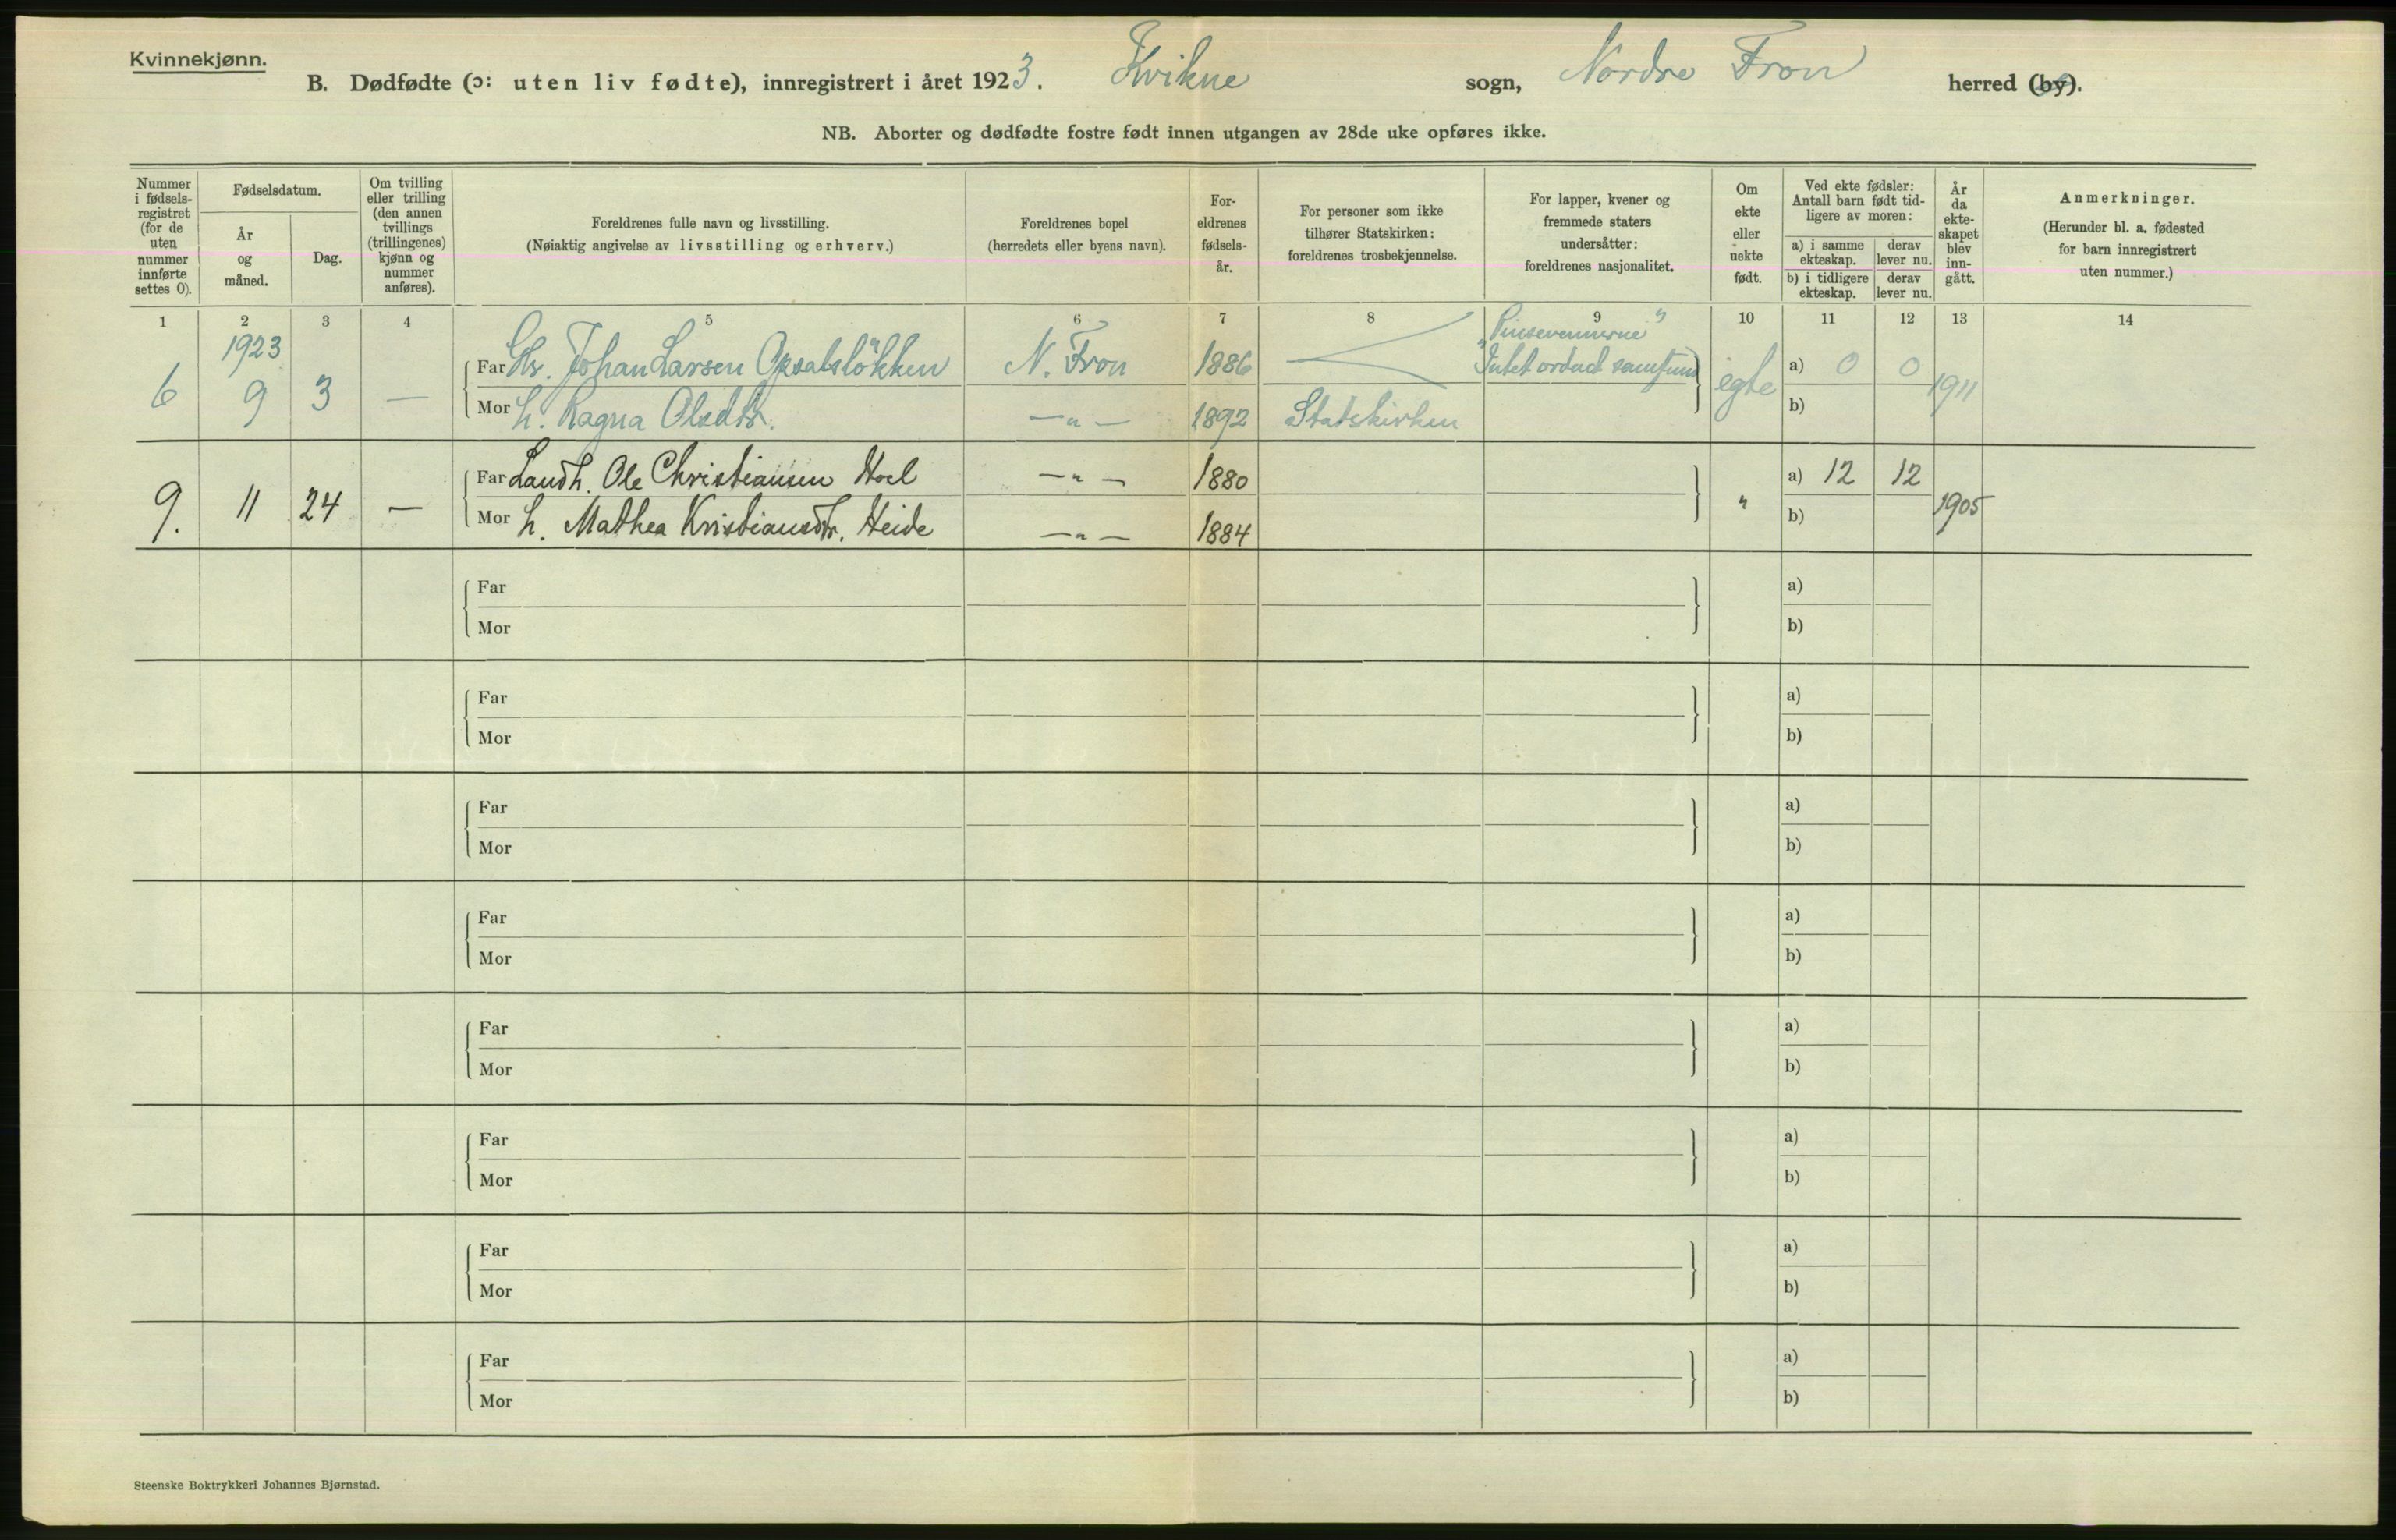 Kvinnekjønn.
B. Dødfødte (ɔ: uten liv fødte), innregistrert i året 1923. Kvikne sogn, Nordre Fron herred (by).
NB. Aborter og dødfødte fostre født innen utgangen av 28de uke opføres ikke.
Nummer i fødsels-registret (for de uten nummer innførte settes 0).
Fødselsdatum.
År og måned.
Dag.
Om tvilling eller trilling (den annen tvillings (trillingenes) kjønn og nummer anføres).
Foreldrenes fulle navn og livsstilling.
(Nøiaktig angivelse av livsstilling og erhverv.)
Foreldrenes bopel
(herredets eller byens navn).
For-eldrenes fødsels-år.
For personer som ikke tilhører Statskirken: foreldrenes trosbekjennelse.
For lapper, kvener og fremmede staters undersåtter: foreldrenes nasjonalitet.
Om ekte eller uekte født.
Ved ekte fødsler: Antall barn født tid-ligere av moren:
a) i samme ekteskap.
derav lever nu.
b) i tidligere ekteskap.
derav lever nu.
År da ekte-skapet blev inn-gått.
Anmerkninger.
(Herunder bl. a. fødested for barn innregistrert uten nummer.)
1 2 3 4 5 6 7 8 9 10 11 12 13 14
1923 "Pinsevennerne"
6 9 3 — Far Johan Larsen Opsalsløkken N. Fron 1886 Intet ordnet samfund egte a) 0 0 1911
Mor h. Ragna Olsdtr. —"— 1892 Statskirken b)
9. 11 24 — Far Landh. Ole Christiansen Hoel —"— 1880 " a) 12 12 1905
Mor h. Mathea Kristiansdtr. Heide —"— 1884 b)
Far a)
Mor b)
Far a)
Mor b)
Far a)
Mor b)
Far a)
Mor b)
Far a)
Mor b)
Far a)
Mor b)
Far a)
Mor b)
Far a)
Mor b)
Steenske Boktrykkeri Johannes Bjørnstad.